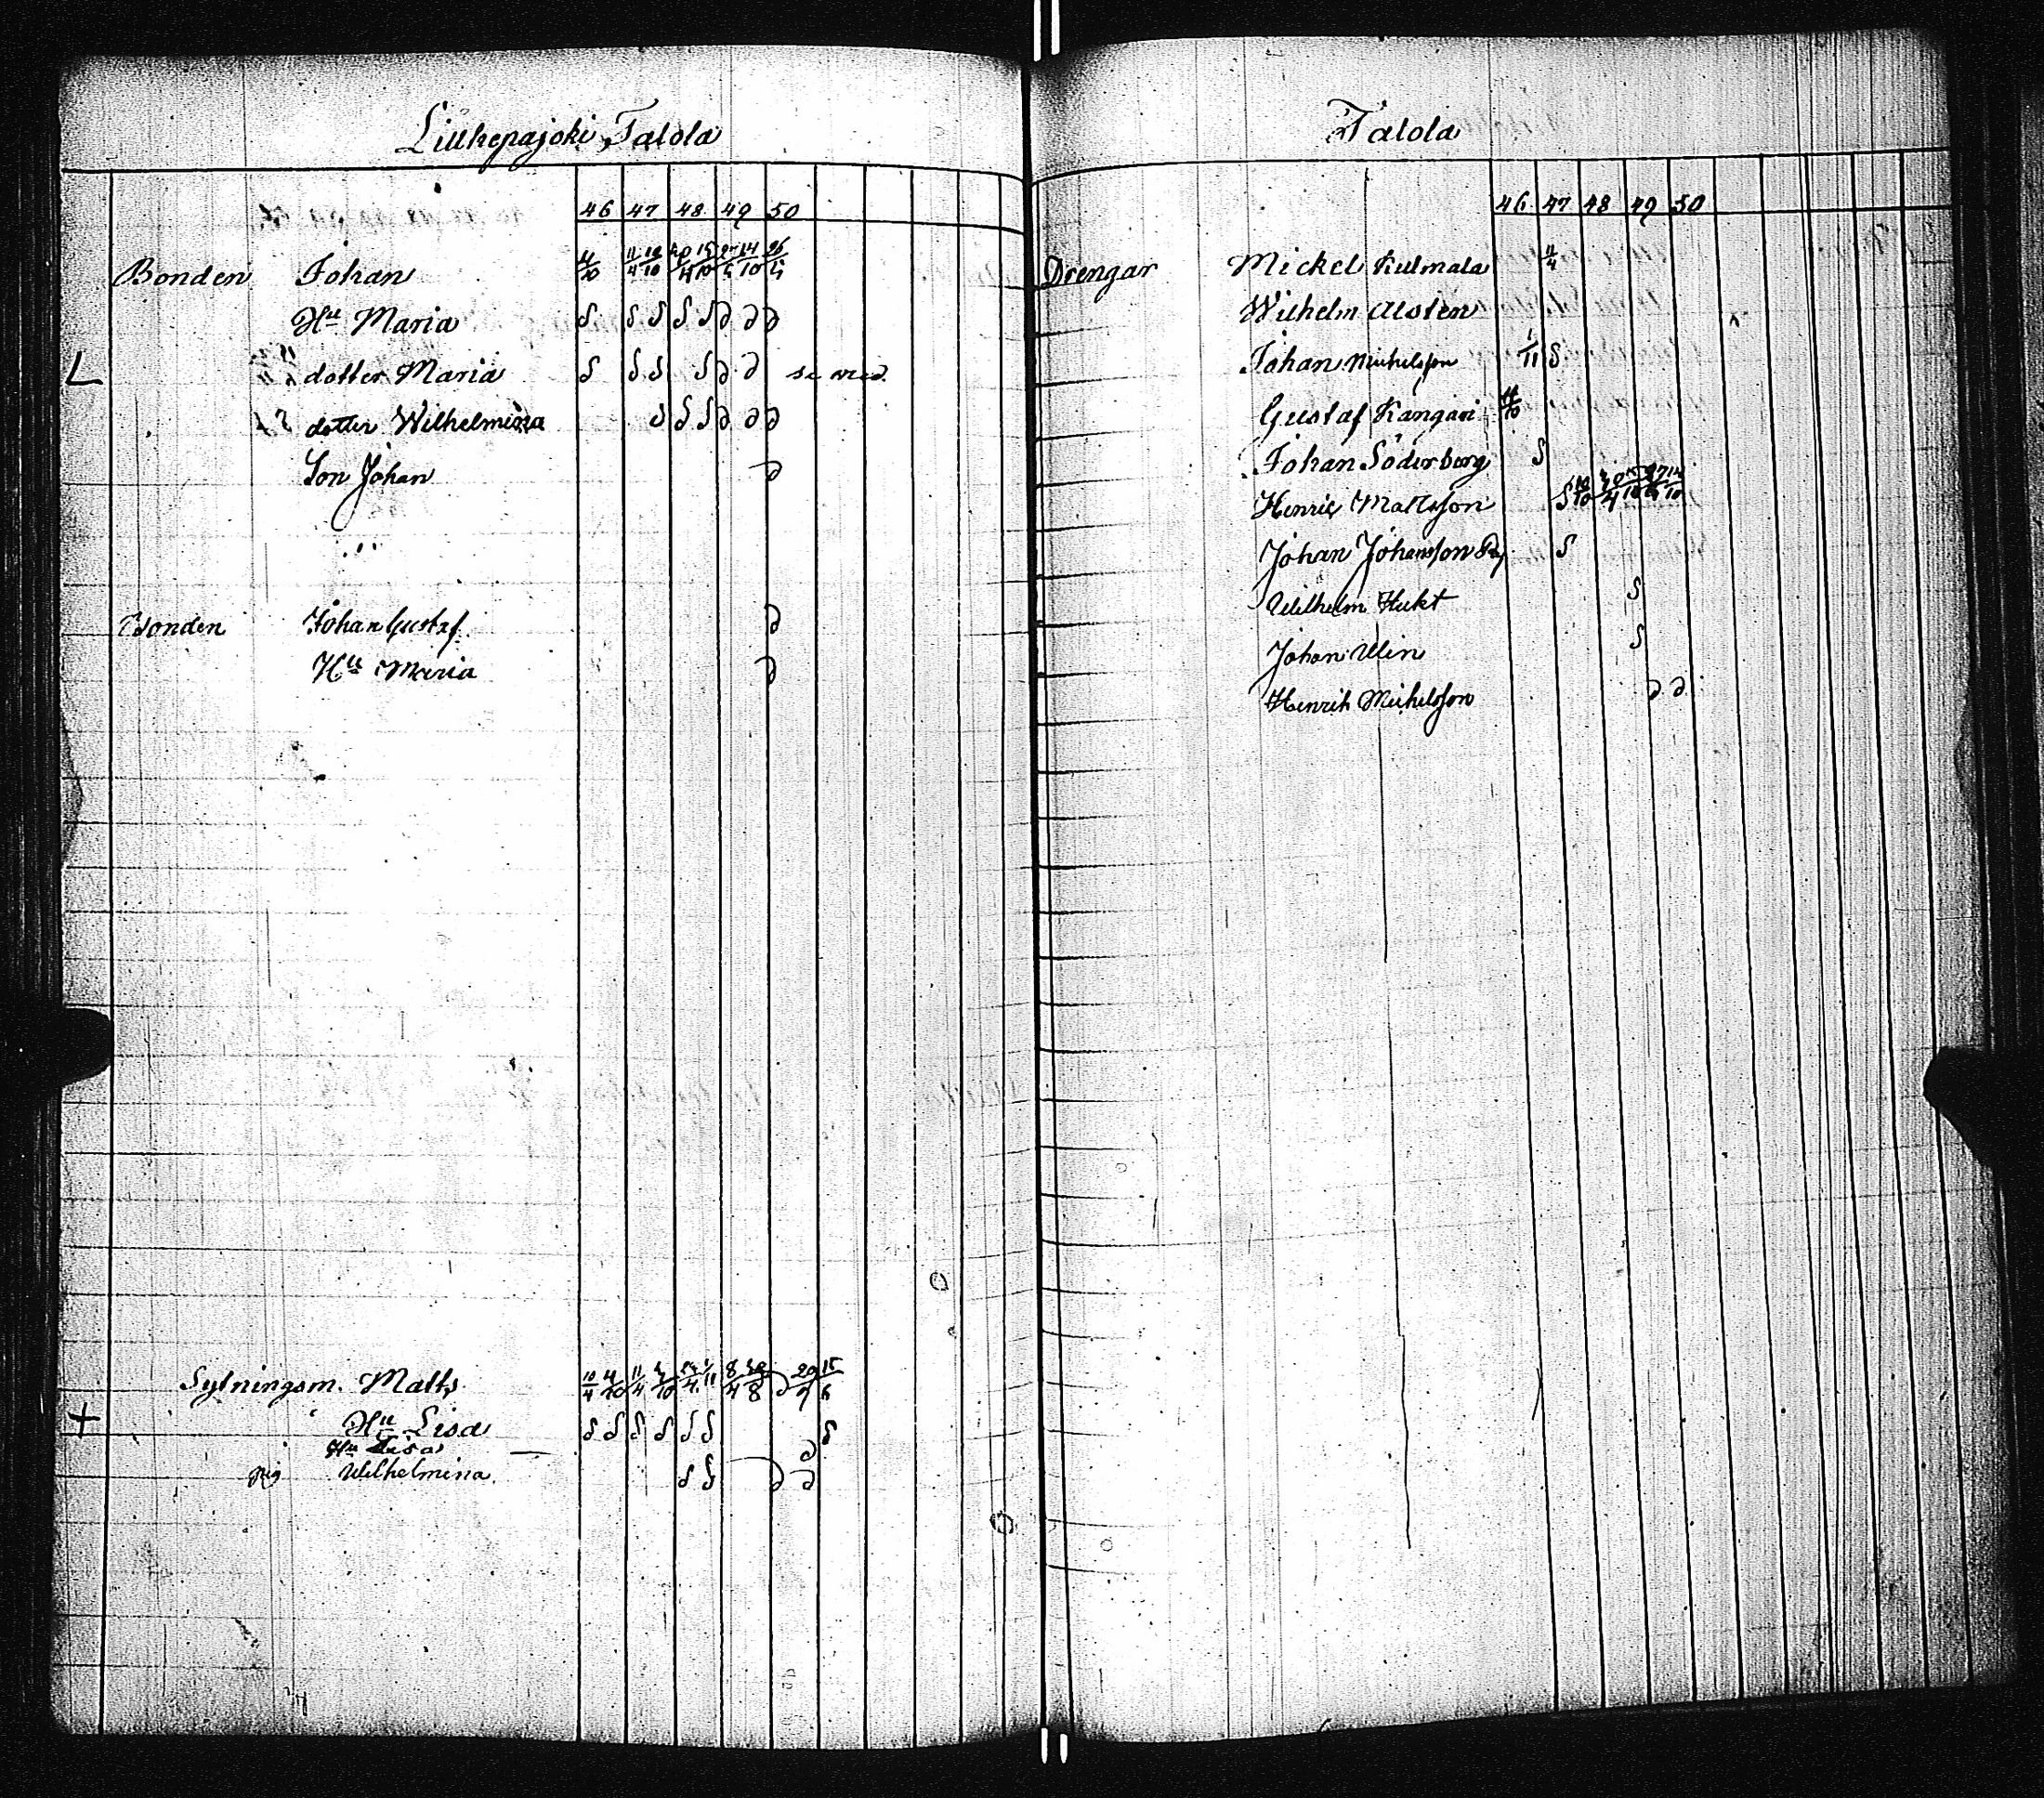 Liukepajoki Talola
46 47 48 49 50
Bonden Johan 11/10 11/4 10/10 20/4 15/10 27/4 14/10 26/4
Hu Maria S S S S S ∂ ∂ ∂
dotter Maria S S S S ∂ ∂ se ned.
dotter Wilhelmina S S S ∂ ∂ ∂
Son Johan ∂
Bonden Johan Gustaf ∂
Hu Maria ∂
Sytningsm. Matts
Hu Lisa S S S S S S S
Hu Lisa — ∂
Pig Wilhelmina S S ∂ ∂
Talola
46 47 48 49 50
Drengar Mickel Kulmala 11/4
Wilhelm Alsten
Johan Michelsson 1/11 S
Gustaf Kangari 11/10
Johan Söderberg S
Henric Mattsson S 10/10 20/4 15/10 27/4 14/10
Johan Johansson S
Wilhelm Hukt S
Johan Ulin S
Henrik Michelsson ∂ ∂